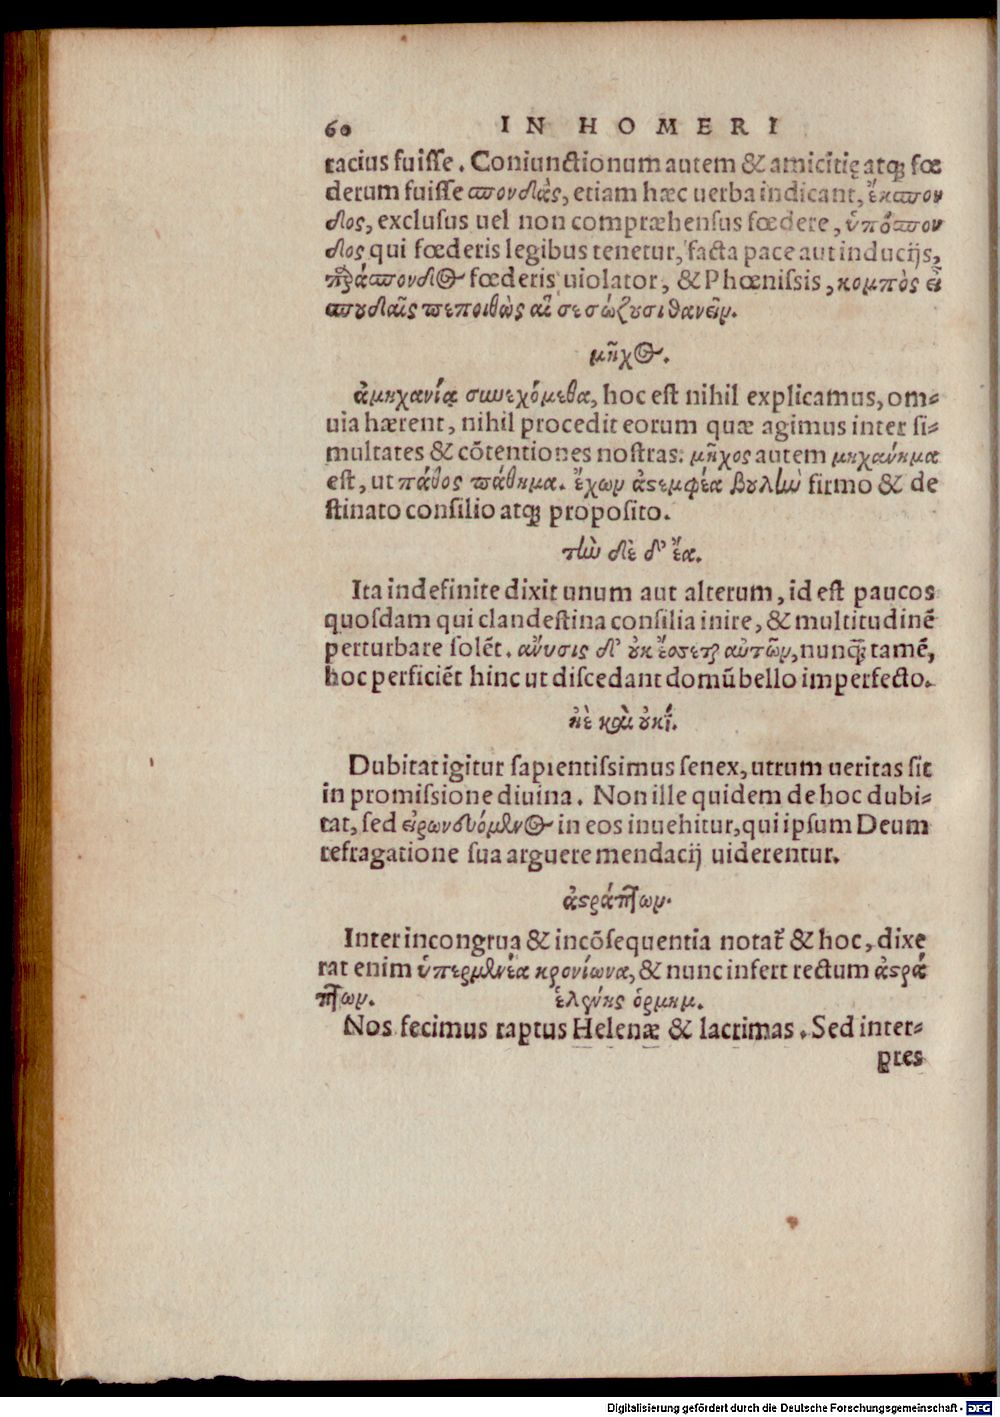 60 IN HOMERI
racius fuisse. Coniunctionum autem & amicitię atq; fœ
derum fuisse σπονδὰς, etiam hæc uerba indicant, ἔκσπον
δος, exclusus uel non compræhensus fœdere, ὑπόσπον
δος qui fœderis legibus tenetur, facta pace aut inducijs,
παράσπονδος fœderis uiolator, & Phœnissis, κομπὸς εἶ
σπονδαῖς πεποιθὼς αἵ σε σώζουσι θανεῖν.
μῆχος.
ἀμηχανίᾳ συνεχόμεθα, hoc est nihil explicamus, om-
nia hærent, nihil procedit eorum quæ agimus inter si-
multates & cōtentiones nostras. μῆχος autem μηχάνημα
est, ut πάθος πάθημα. ἔχων ἀστεμφέα βουλὴν firmo & de
stinato consilio atq; proposito.
τὼ δὲ δ' ἔα.
Ita indefinite dixit unum aut alterum, id est paucos
quosdam qui clandestina consilia inire, & multitudinē
perturbare solēt. ἄνυσις δ' οὐκ ἔσσεται αὐτῶν, nunq̃ tamē,
hoc perficiēt hinc ut discedant domū bello imperfecto.
ἠὲ καὶ οὐκί.
Dubitat igitur sapientissimus senex, utrum ueritas sit
in promissione diuina. Non ille quidem de hoc dubi-
tat, sed εἰρωνευόμενος in eos inuehitur, qui ipsum Deum
refragatione sua arguere mendacij uiderentur.
ἀστράπτων.
Inter incongrua & incōsequentia notat̃ & hoc, dixe
rat enim ὑπερμενέα κρονίωνα, & nunc infert rectum ἀστρά
πτων. ἑλένης ὁρμημ.
Nos fecimus raptus Helenæ & lacrimas. Sed inter-
pres
Digitalisierung gefördert durch die Deutsche Forschungsgemeinschaft - DFG